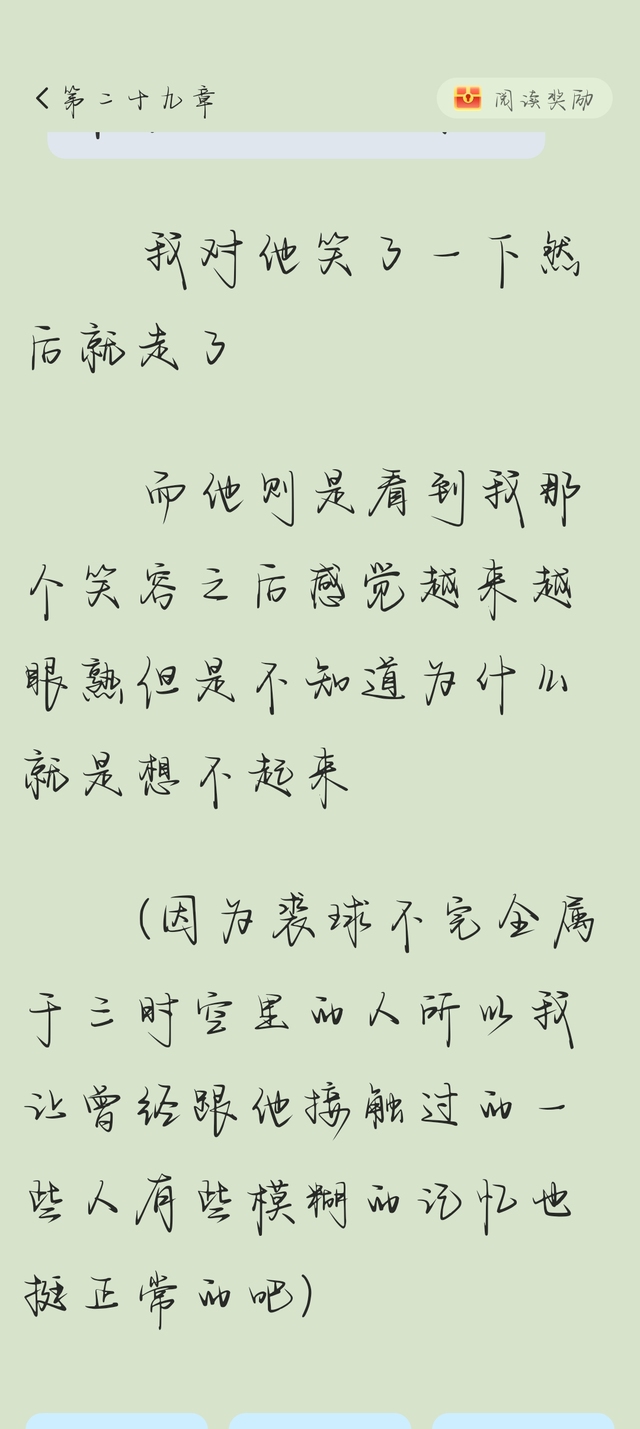 第二十九章
阅读奖励
我对他笑了一下然
后就走了
而他则是看到我那
个笑容之后感觉越来越
眼熟但是不知道为什么
就是想不起来
(因为裘球不完全属
于三时空里的人所以我
让曾经跟他接触过的一
些人有些模糊的记忆也
挺正常的吧)